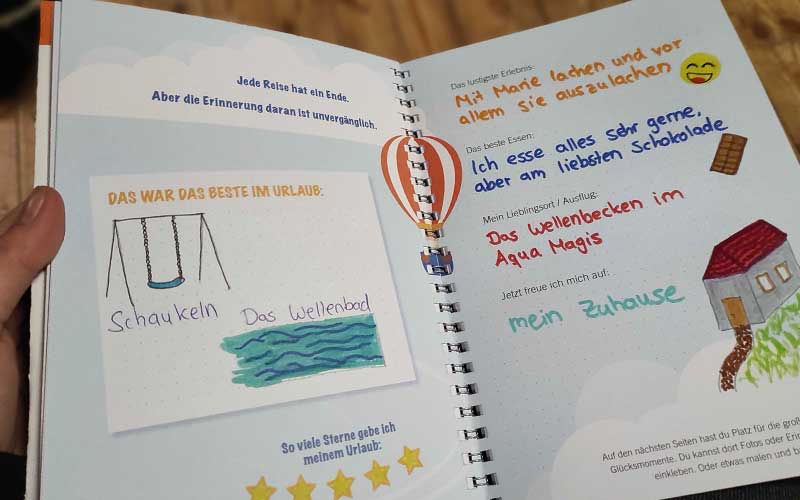 Jede Reise hat ein Ende.
Aber die Erinnerung daran ist unvergänglich.
DAS WAR DAS BESTE IM URLAUB:
Schaukeln
Das Wellenbad
So viele Sterne gebe ich
meinem Urlaub:
Das lustigste Erlebnis:
Mit Marie lachen und vor
allem sie auszulachen
Das beste Essen:
Ich esse alles sehr gerne,
aber am liebsten Schokolade
Mein Lieblingsort / Ausflug:
Das Wellenbecken im
Aqua Magis
Jetzt freue ich mich auf:
mein Zuhause
Auf den nächsten Seiten hast du Platz für die
Glücksmomente. Du kannst dort Fotos oder
einkleben. Oder etwas malen und